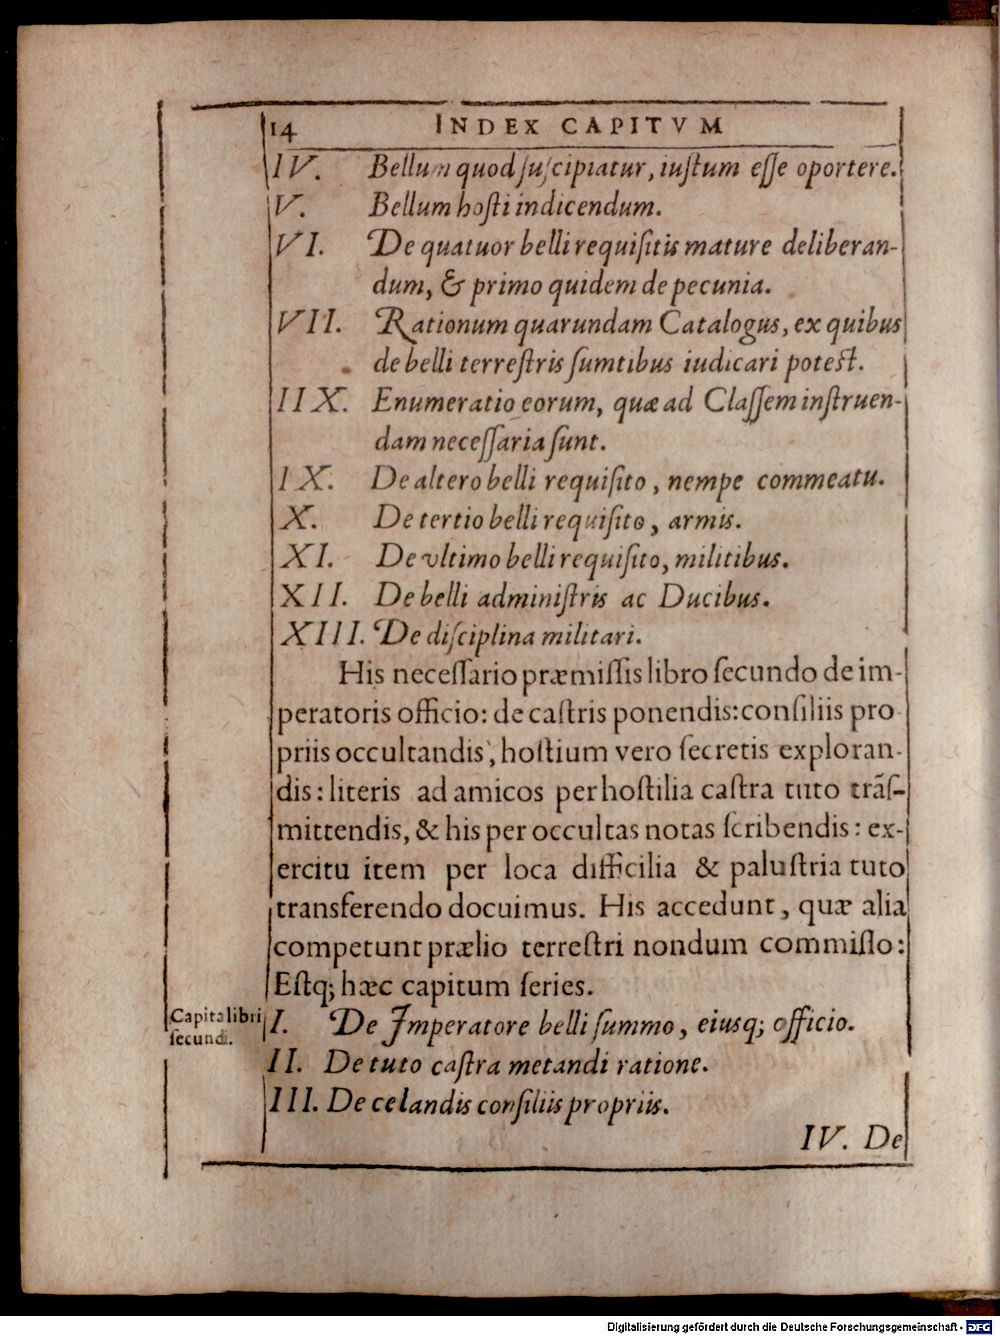 14 INDEX CAPITVM
IV. Bellum quod ſuſcipiatur, iuſtum eſſe oportere.
V. Bellum hoſti indicendum.
VI. De quatuor belli requiſitis mature deliberan-
dum, & primo quidem de pecunia.
VII. Rationum quarundam Catalogus, ex quibus
de belli terreſtris ſumtibus iudicari poteſt.
IIX. Enumeratio eorum, quæ ad Claſſem inſtruen-
dam neceſſaria ſunt.
IX. De altero belli requiſito, nempe commeatu.
X. De tertio belli requiſito, armis.
XI. De vltimo belli requiſito, militibus.
XII. De belli adminiſtris ac Ducibus.
XIII. De diſciplina militari.
His neceſſario præmiſſis libro ſecundo de im-
peratoris officio: de caſtris ponendis: conſiliis pro
priis occultandis, hoſtium vero ſecretis exploran-
dis: literis ad amicos per hoſtilia caſtra tuto trãſ-
mittendis, & his per occultas notas ſcribendis: ex-
ercitu item per loca difficilia & paluſtria tuto
transferendo docuimus. His accedunt, quæ alia
competunt prælio terreſtri nondum commiſſo:
Eſtq; hæc capitum ſeries.
Capita libri
ſecundi.
I. De Imperatore belli ſummo, eiusq; officio.
II. De tuto caſtra metandi ratione.
III. De celandis conſiliis propriis.
IV. De
Digitalisierung gefördert durch die Deutsche Forschungsgemeinschaft - DFG